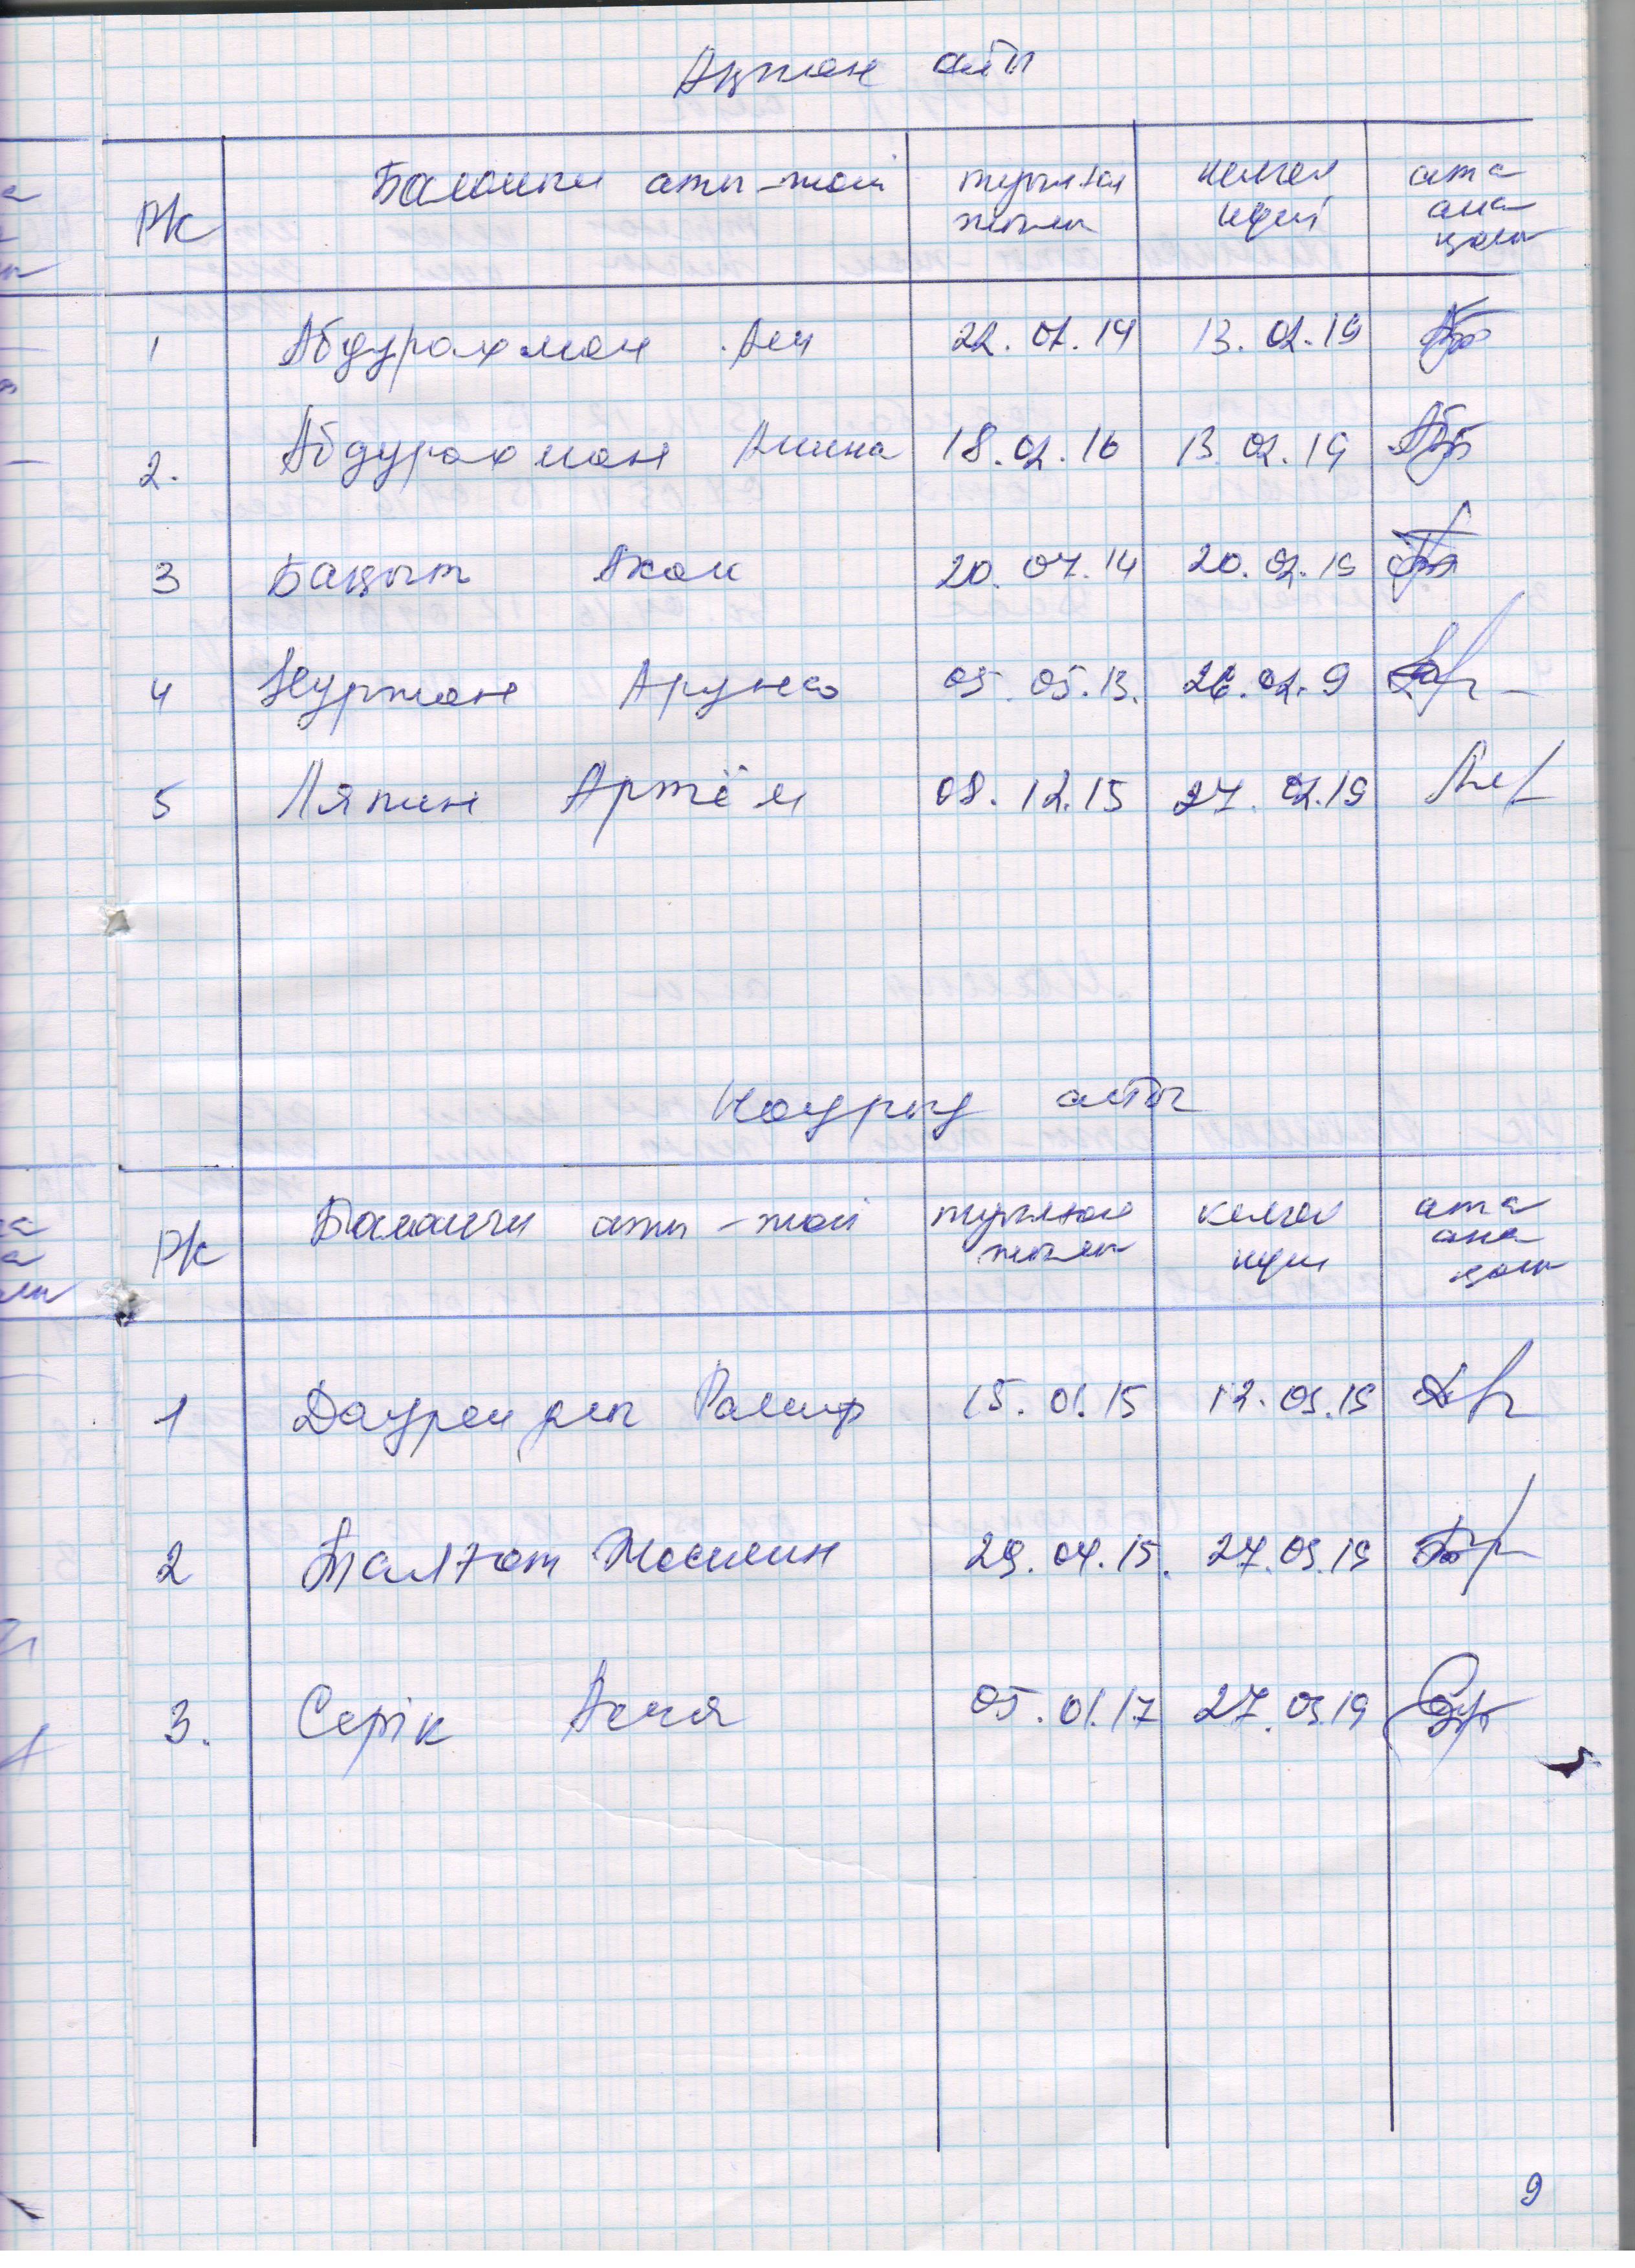 Ақпан айы
Р/к Баланың аты-жөні туылған жылы келген күні ата ана қолы
1 Абдурахман Али 22.02.14 13.02.19
2. Абдурахман Амина 18.02.16 13.02.19
3 Бақыт Жан 20.07.14 20.02.19
4 Нуржан Аружа 05.05.13. 26.02.9
5 Ляпин Артём 08.12.15 27.02.19
Наурыз айы
Р/к Баланың аты-жөні туылған жылы келген күні ата ана қолы
1 Даурен 15.01.15 12.03.19
2 Талғат 29.04.15. 27.03.19
3. Серік Асия 05.01.17 27.03.19
9